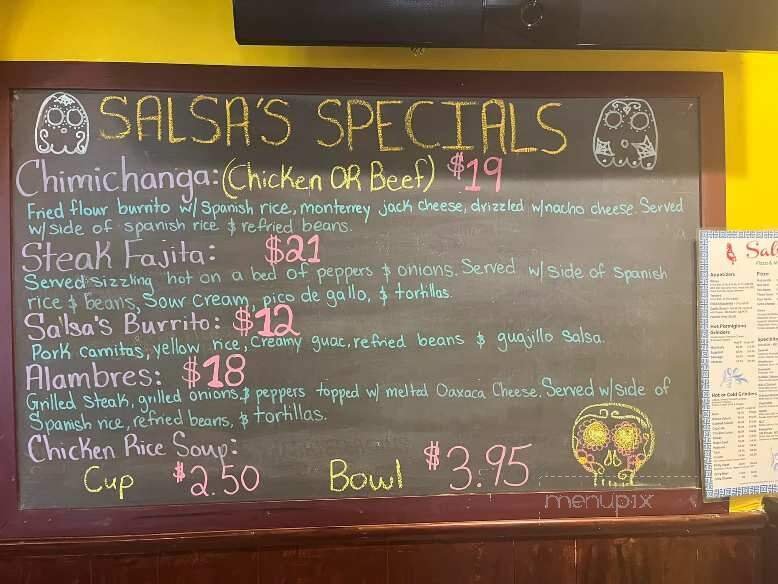 SALSA'S SPECIALS
Chimichanga: (Chicken OR Beef) $19
Fried flour burrito w/ Spanish rice, monterrey jack cheese, drizzled w/nacho cheese. Served
w/side of spanish rice & refried beans.
Steak Fajita: $21
Served sizzling hot on a bed of peppers & onions. Served w/side of Spanish
rice & beans, Sour cream, pico de gallo, & tortillas.
Salsa's Burrito: $12
Pork carnitas, yellow rice, creamy guac, refried beans & guajillo salsa.
Alambres: $18
Grilled steak, grilled onions & peppers topped w/ melted Oaxaca Cheese. Served w/side of
Spanish rice, refried beans, & tortillas.
Chicken Rice Soup:
Cup $2.50 Bowl $3.95
menupix
Appetizers
Hot Parmigiana
Grinders
Hot or Cold Grinders